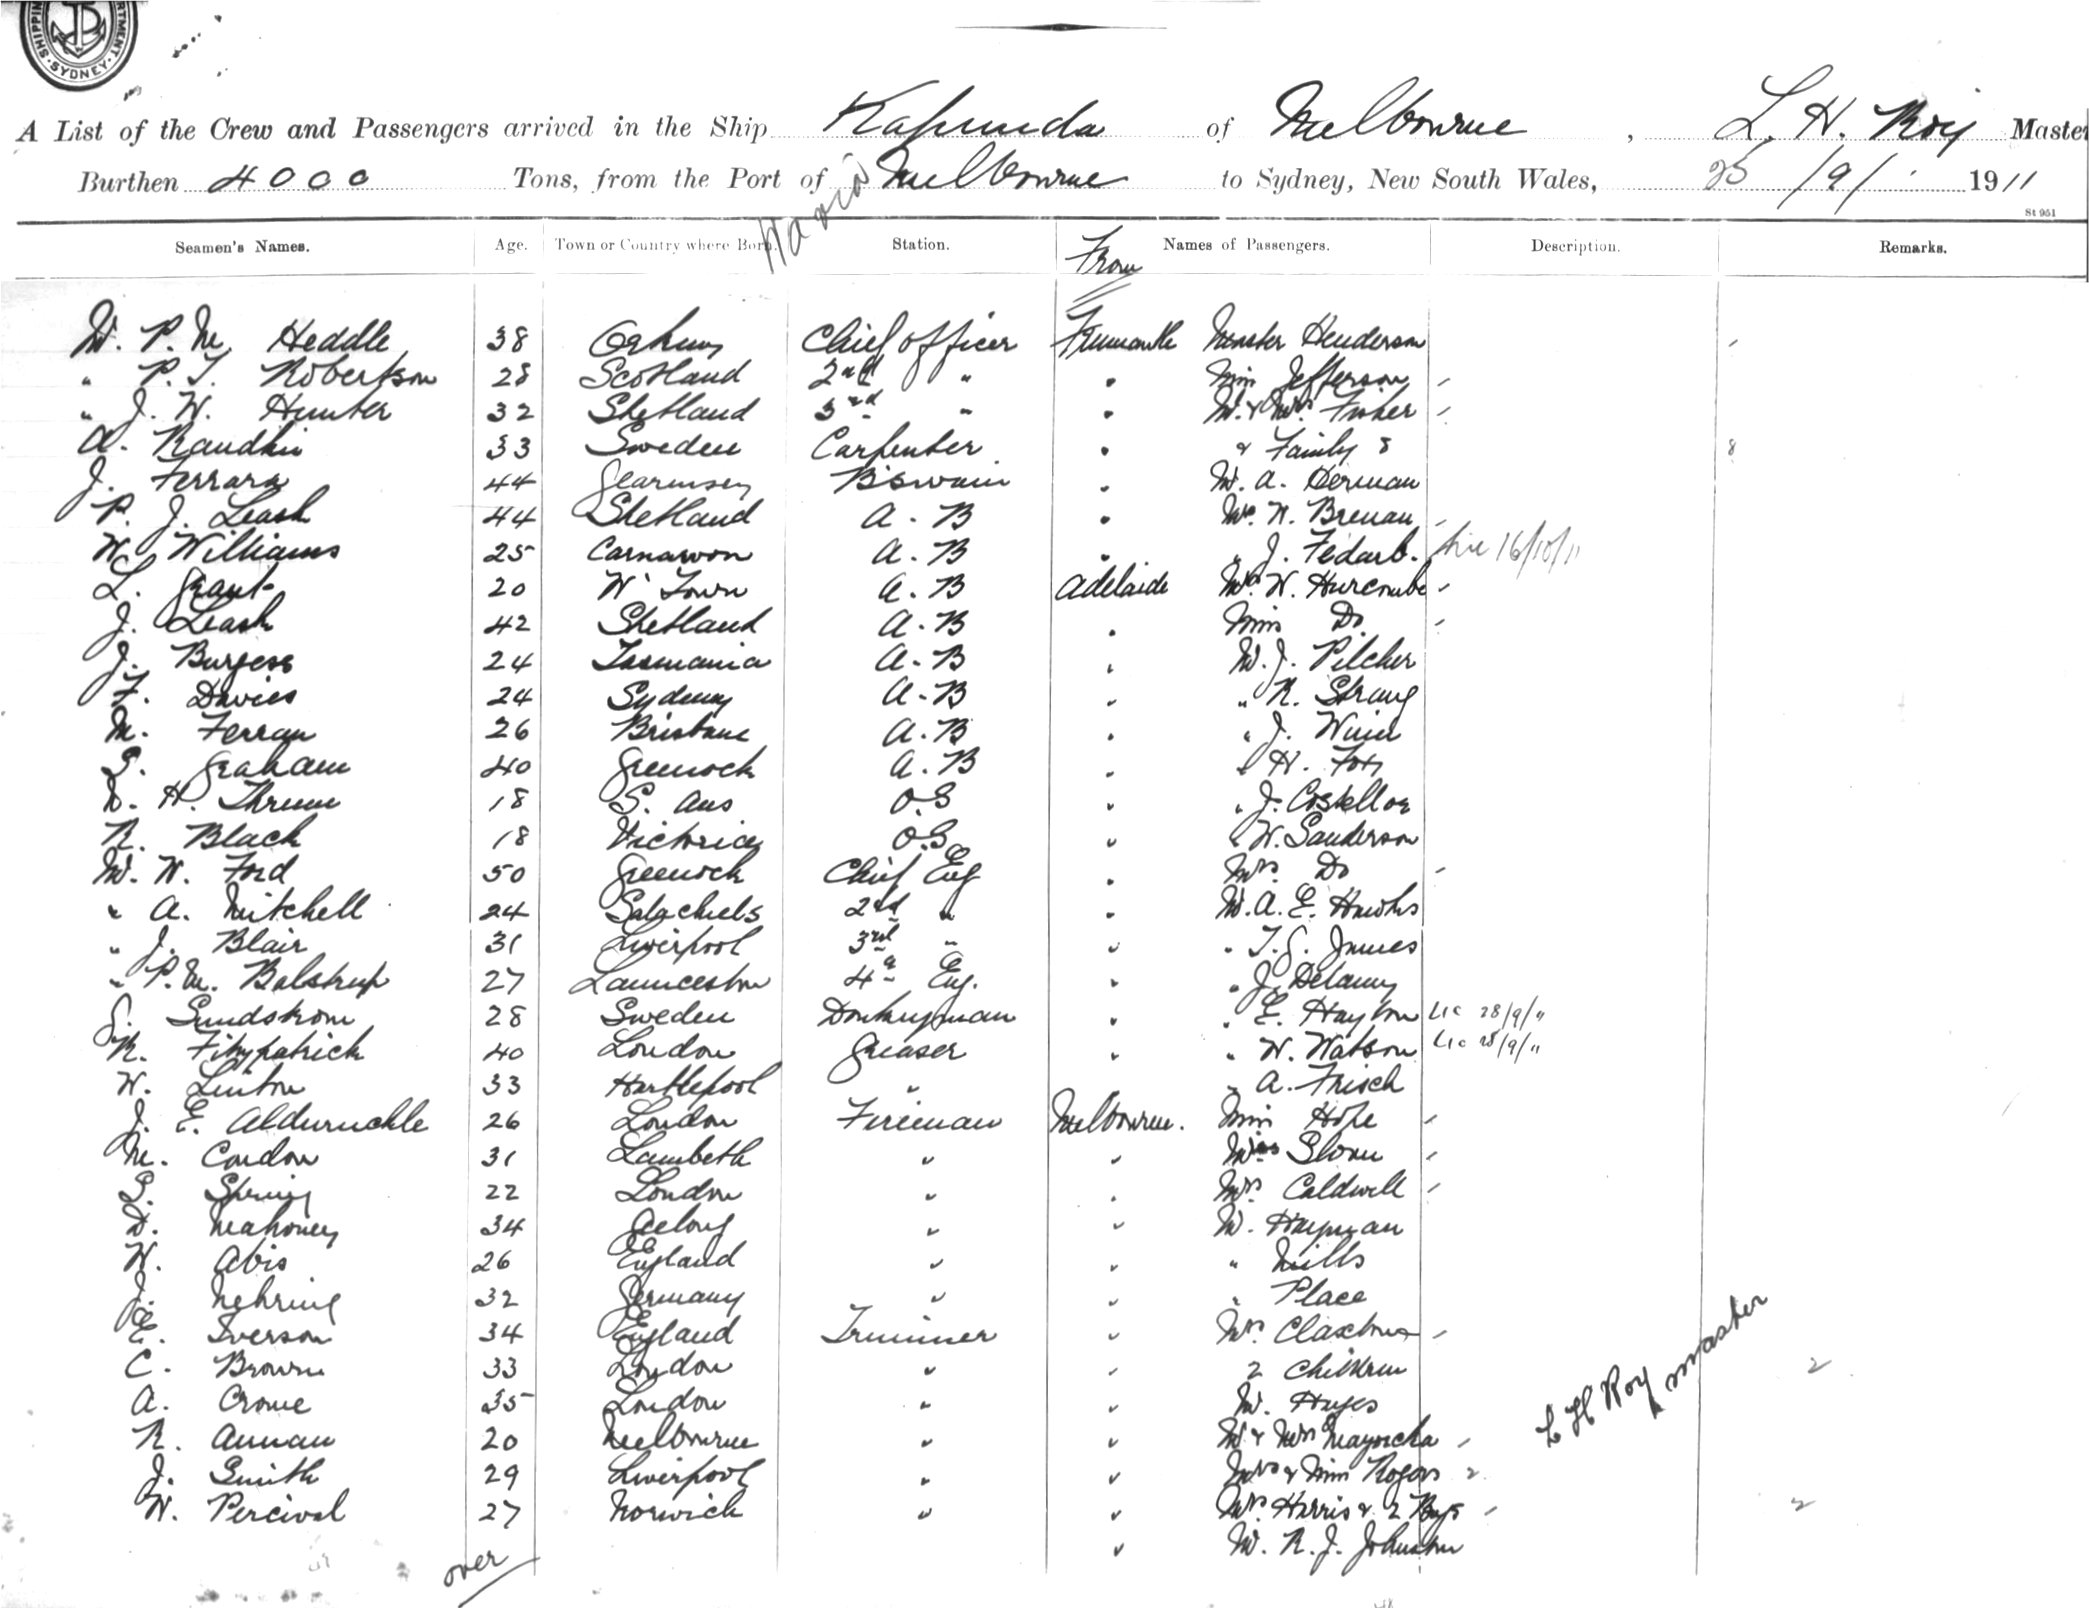 SHIPPING DEPARTMENT SYDNEY
A List of the Crew and Passengers arrived in the Ship Kapunda of Melbourne, L. H. Roy Master
Burthen 4000 Tons, from the Port of Melbourne to Sydney, New South Wales, 25/9/ 1911
St 951
Seamen's Names. Age. Town or Country where Born. Station. From Names of Passengers. Description. Remarks.
M. P. M. Heddle 38 Orkney Chief Officer Fremantle Master Henderson
" P. T. Robertson 28 Scotland 2nd " " Miss Jefferson
" J. W. Hunter 32 Shetland 3rd " " Mr & Mrs Fisher
A. 33 Sweden Carpenter " & Family 8 8
J. Ferrara 44 B'swain " Mr. A. Herman
P. J. Leask 44 Shetland A. B " Mr. W. Brenan
W. Williams 25 Carnarvon A. B " " J. Fedarb. 16/10/11
L. Grant 20 W' Town A. B Adelaide Mrs W. Hurcombe
J. Leask 42 Shetland A. B " Miss Do
J. Burgess 24 Tasmania A. B " Mr. J. Pilcher
F. Davies 24 Sydney A. B " " R. Strang
M. Ferran 26 Brisbane A. B " " J.
S. Graham 40 Greenock A. B " " H. Fox
D. H. Thrum 18 S. Aus O.S " " J. Costelloe
R. Black 18 Victoria O.S " " W. Sanderson
Mr. W. Ford 50 Greenock Chief Eng " Mrs Do
" A. Mitchell 24 Galachiels 2nd " " Mr. A. E. Hawks
" J. Blair 31 Liverpool 3rd " " " T. G. James
" P. M. Balstrup 27 Launceston 4th Eng. " " J. Delany
G. Sundstrom 28 Sweden Donkeyman " " E. Hayton 28/9/11
R. Fitzpatrick 40 London Greaser " " W. Watson 28/9/11
W. Linton 33 Hartlepool " " " A. Frisch
J. E. 26 London Fireman Melbourne. Miss Hope
M. Condon 31 Lambeth " " Miss Sloan
S. Spring 22 London " " Mrs Caldwell
D. Mahoney 34 Geelong " " Mr. Hayman
W. Abis 26 England " " " Mills
J. Nehring 32 Germany " " " Place
E. Iverson 34 England Trimmer " Mrs Claxton
C. Brown 33 London " " 2 Children 2
A. Crowe 35 London " " Mr. Hayes
R. Annan 20 Melbourne " " Mr & Mrs
J. Smith 29 Liverpool " " Mrs & Miss Rogers 2
W. Percival 27 Norwich " " Mrs Harris & 2 Boys 2
" Mr. R. J. Johnston
L H Roy master
over